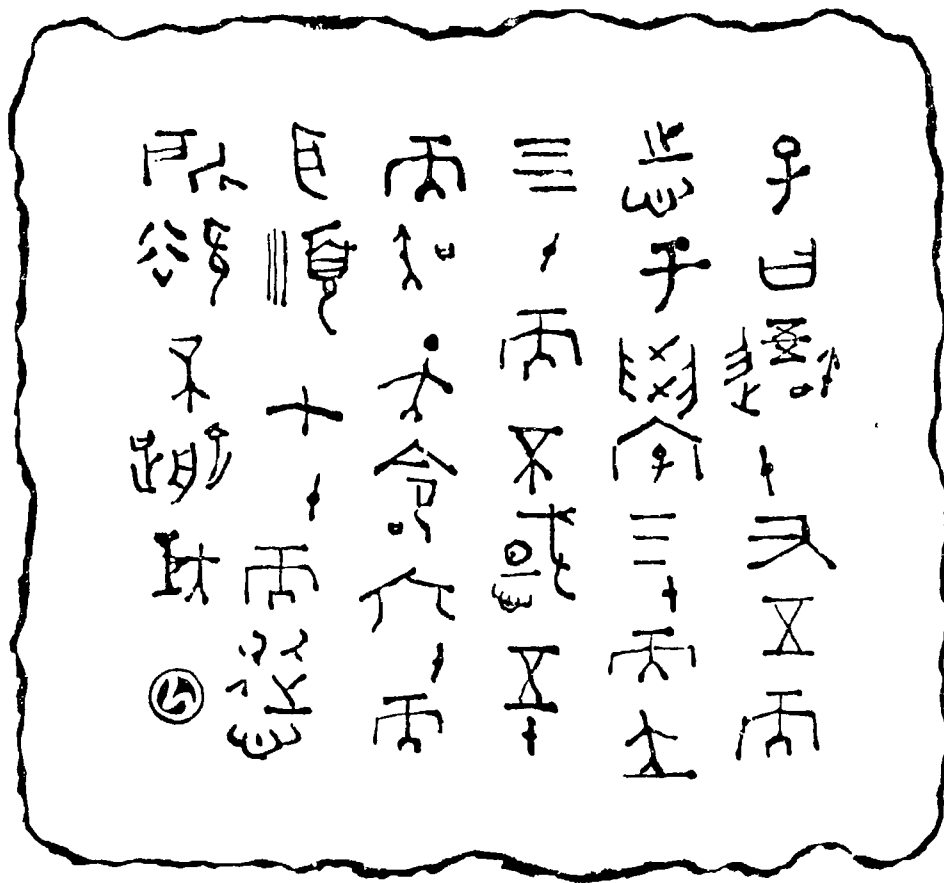 子曰吾十又五而
志于學三十而立
四十而不惑五十
而知天命六十而
耳順七十而從心
所欲不踰矩